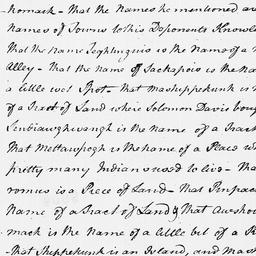 homack - that the Names he mentioned are
Names of Towns to this Deponents Knowle
That the Name is the Name of a
Alley - that the Name of Sackapois is the Na
a little wet Spot - that Mashippekunk is
of a Tract of Land where Solomon Davis boug
is the Name of a Tract
That Mettawpogh is the Name of a Place wh
pretty many Indians used to live - Tha
romus is a Piece of Land - That
Name of a Tract of Land & That
mack is the Name of a little bit of a
- that Shippekunk is an Island, and